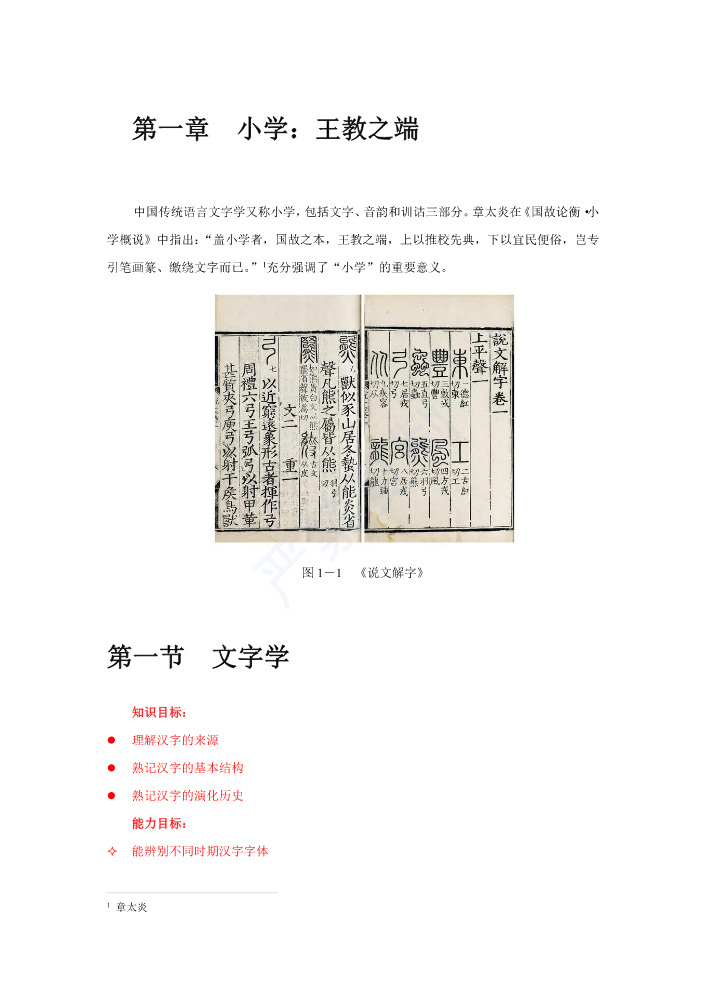 第一章 小学：王教之端
中国传统语言文字学又称小学，包括文字、音韵和训诂三部分。章太炎在《国故论衡·小
学概说》中指出：“盖小学者，国故之本，王教之端，上以推校先典，下以宜民便俗，岂专
引笔画篆、缴绕文字而已。”1充分强调了“小学”的重要意义。
說文解字卷一
上平聲一
東 一德紅切 工 二古紅切
豐 三敷戎切
獸似豕山居冬蟄从能炎省
聲凡熊之屬皆从熊
文二 重一
弓 七 以近窮遠象形古者揮作弓
周禮六弓王弓弧弓以射甲革
甚質夾弓庾弓以射干矦鳥獸
图 1－1 《说文解字》
第一节 文字学
知识目标：
● 理解汉字的来源
● 熟记汉字的基本结构
● 熟记汉字的演化历史
能力目标：
✧ 能辨别不同时期汉字字体
1 章太炎